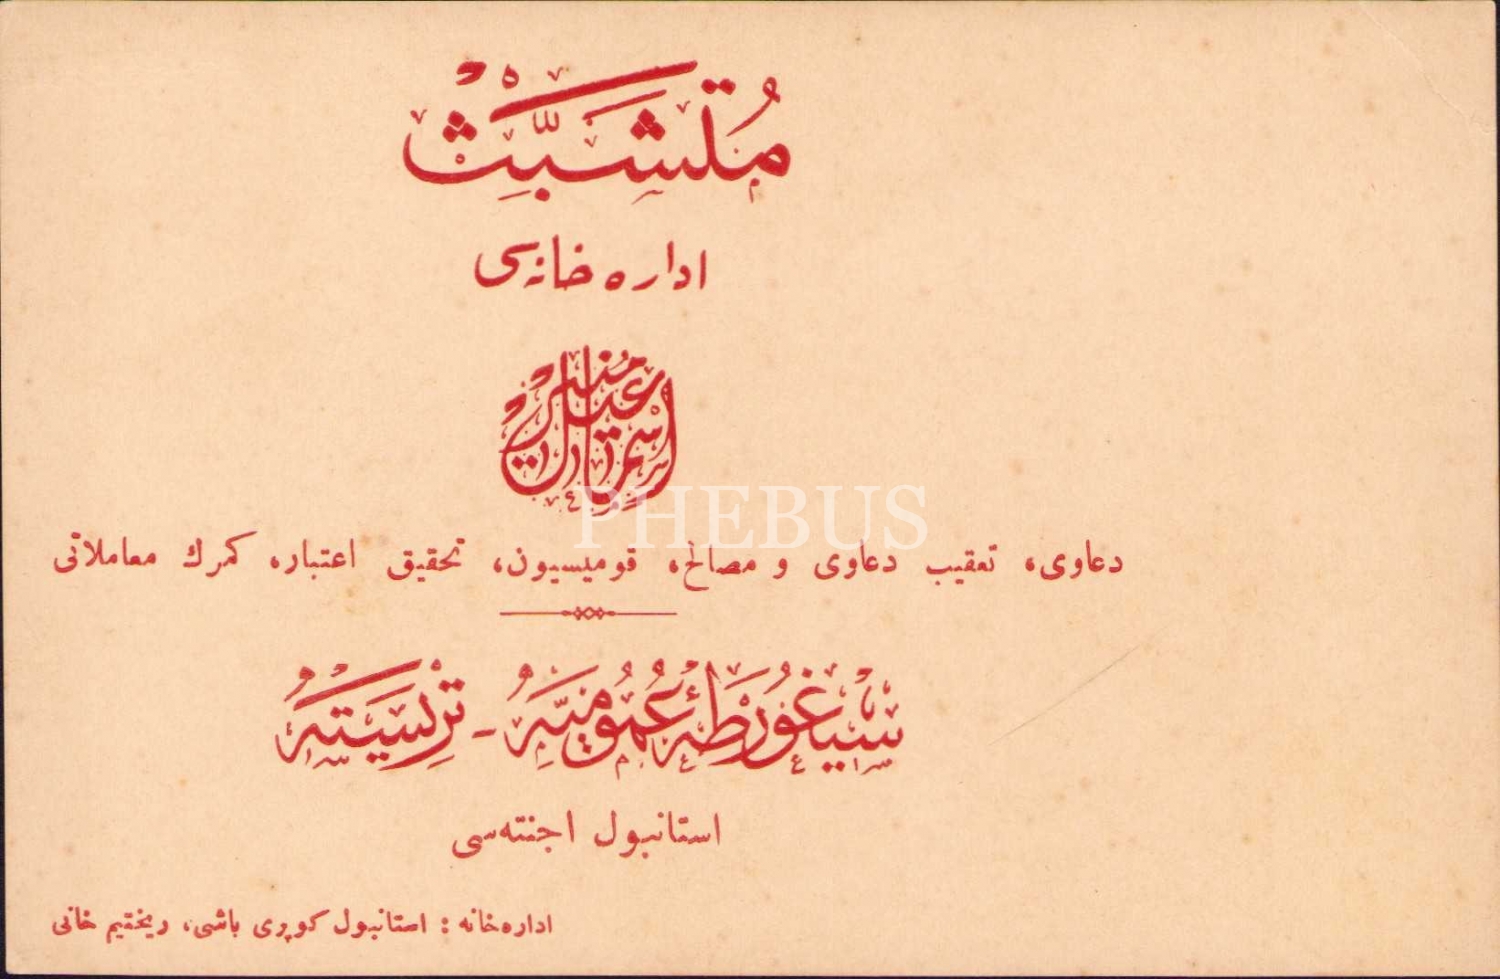 متشبث
اداره خانه‌سی
دعاوی، تعقیب دعاوی و مصالح، قومیسیون، تحقیق اعتبار، کمرك معاملاتی
PHEBUS
سیغورطهٔ عمومیه - تریسته
استانبول اجنته‌سی
اداره‌خانه : استانبول کوپری باشی، ریختیم خانی